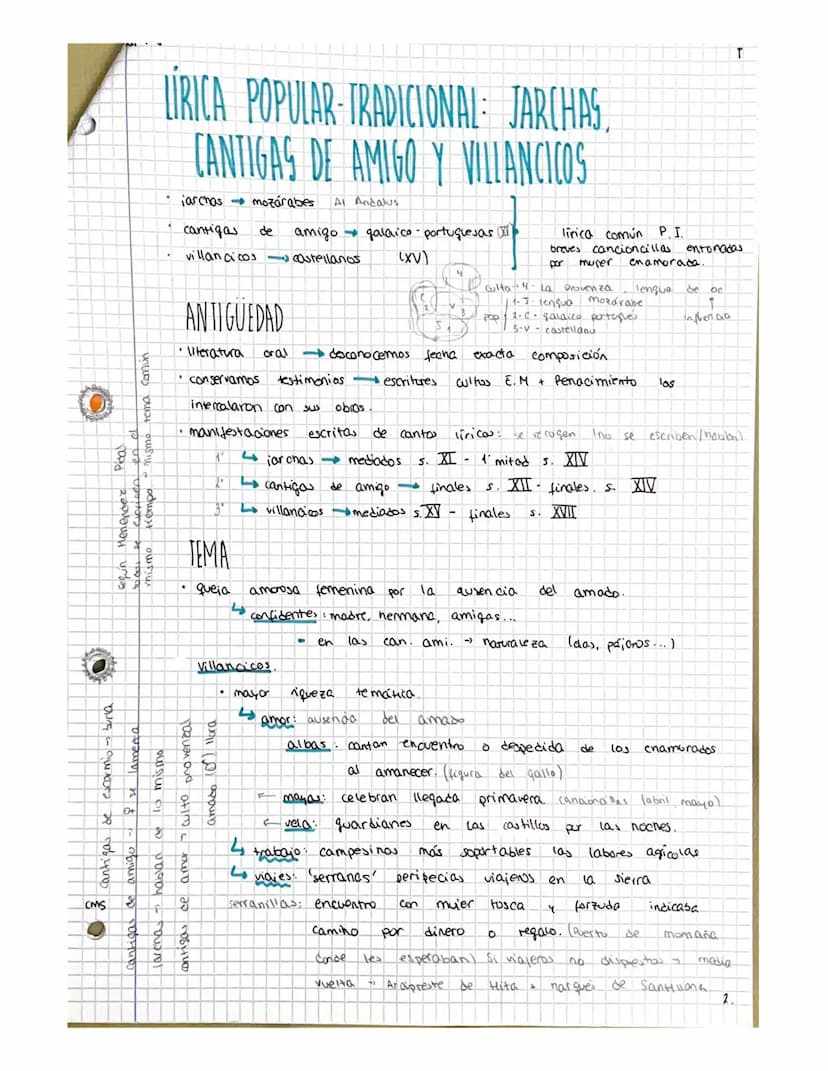 T
LÍRICA POPULAR-TRADICIONAL: JARCHAS,
CANTIGAS DE AMIGO Y VILLANCICOS
· jarchas → mozárabes Al Andalus
· cantigas de amigo → galaico-portuguesas (XII)
· villancicos → castellanos (XV)
lírica común P.I.
breves cancioncillas entonadas
por mujer enamorada.
culto → 4 - La provenza, lengua de oc
pop 1-J- lengua mozárabe
2-C- galaico portugués
3-V- castellano
influencia
ANTIGÜEDAD
· literatura oral → desconocemos fecha exacta composición
· conservamos testimonios → escritores cultos E.M + Renacimiento los
intercalaron con sus obras.
· manifestaciones escritas de cantos líricos: se recogen (no se escriben/nacían)
1º ↳ jarchas → mediados s. XI - 1ª mitad s. XIV
2º ↳ cantigas de amigo → finales s. XII - finales. s. XIV
3º ↳ villancicos → mediados s. XV - finales s. XVII
según Menéndez Pidal
todas se escriben en el
mismo tiempo → mismo tema común
TEMA
· queja amorosa femenina por la ausencia del amado.
↳ confidentes: madre, hermana, amigas...
• en las can. ami. → naturaleza (olas, pájaros...)
Villancicos.
• mayor riqueza temática.
↳ amor: ausencia del amado
albas: cantan encuentro o despedida de los enamorados
al amanecer. (figura del gallo)
← mayas: celebran llegada primavera cancioncillas (abril, mayo)
← vela: guardianes en los castillos por las noches.
↳ trabajo: campesinos más soportables las labores agícolas
↳ viajes: 'serranas' peripecias viajeros en la sierra
serranillas: encuentro con mujer tosca y forzuda indicaba
camino por dinero o regalo. (Puerto de momaña
donde les esperaban) Si viajeros no dispuestos → media
vuelta → Arcipreste de Hita + marqués de Santillana
Cantigas de escarnio → burla
cantigas de amigo → ♀ se lamenta
Jarchas → hablan de lo mismo
cantigas de amor → culto provenzal
amado (♂) llora
CMS
2.